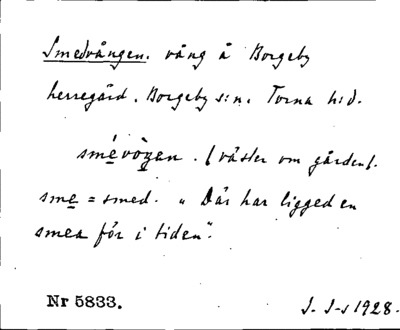 Smedvången. vång å Borgeby
herregård. Borgeby s:n. Torna hd.
smévòŋen. (väster om gården).
sme = smed. "Där har ligged en
smea för i tiden".
Nr 5833.
1928.